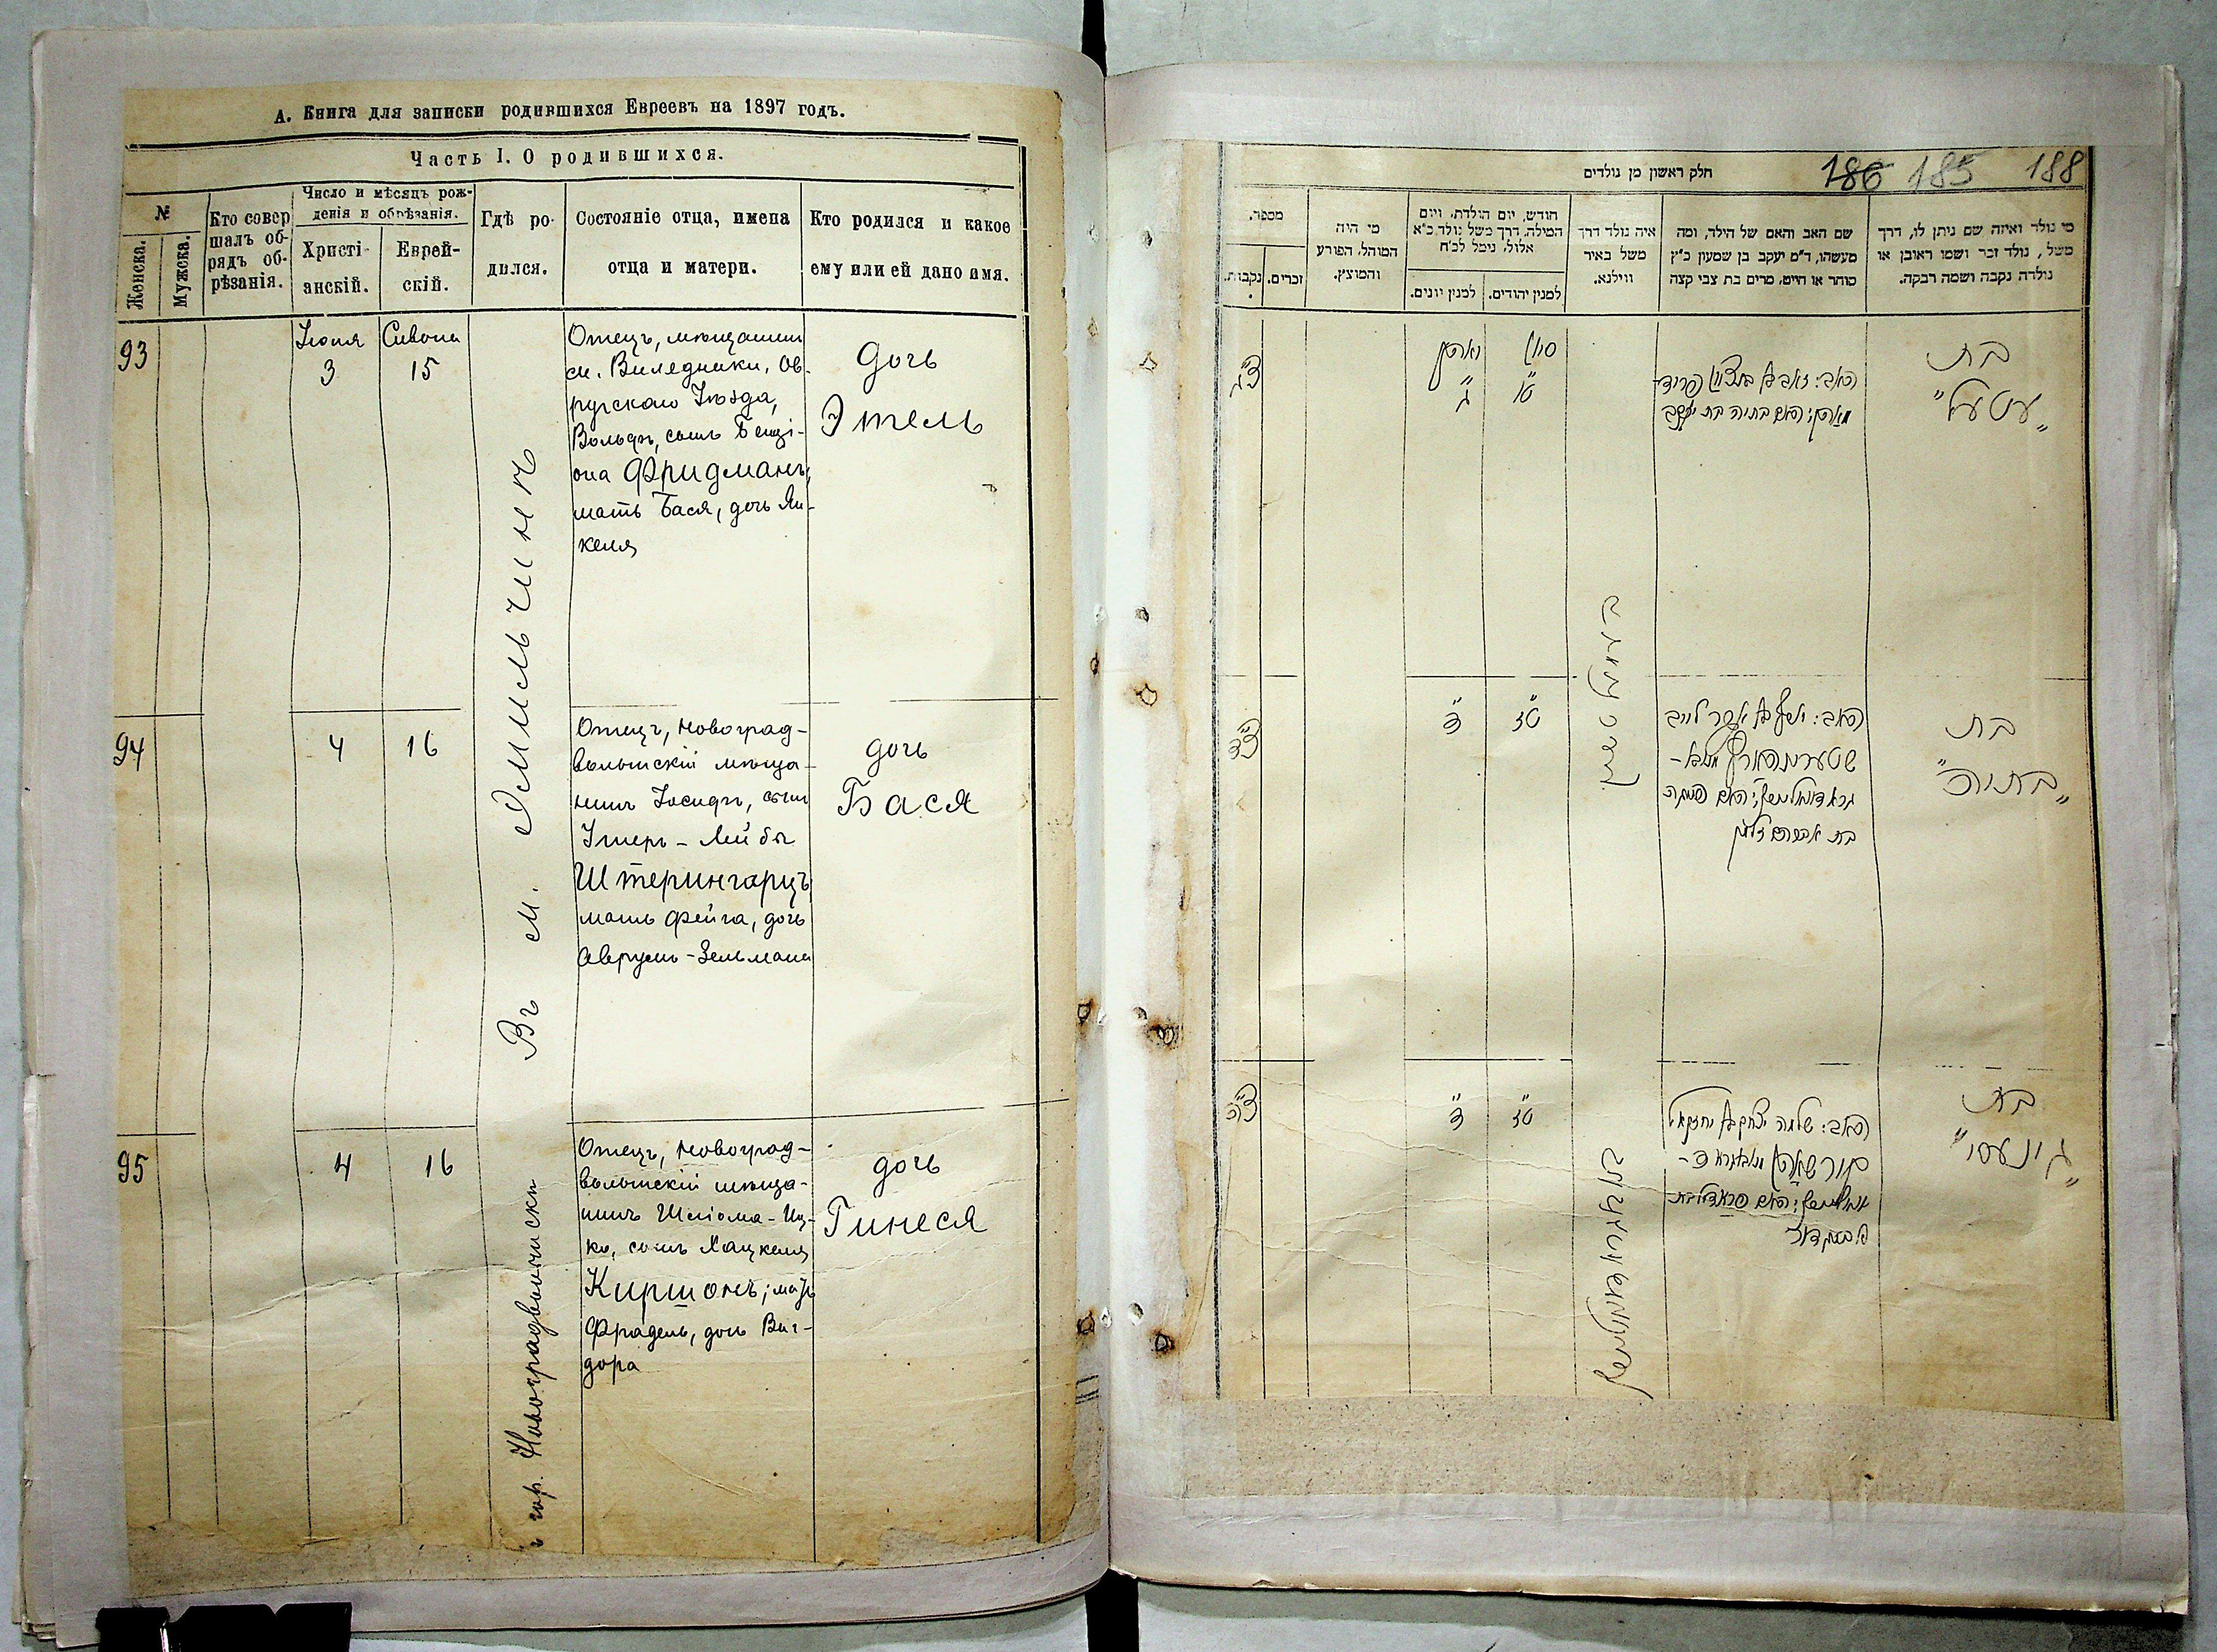 А. Книга для записки родившихся Евреевъ на 1897 годъ.
Часть I. О родившихся.
№
Женска.
Мужска.
Кто совер
шалъ об-
рядъ об-
рѣзанія.
Число и мѣсяцъ рож-
денія и обрѣзанія.
Христі-
анскій.
Еврей-
скій.
Гдѣ ро-
дился.
Состояніе отца, имена
отца и матери.
Кто родился и какое
ему или ей дано имя.
93
Іюня
3
Сивона
15
Въ м. Эмильчинѣ
Отецъ, мѣщанинъ
м. Виледники, Ов-
ручскаго Уѣзда,
Вольфъ, сынъ Бенці-
она Фридманъ,
мать Бася, дочь Ян-
келя
Дочь
Этель
94
4
16
Отецъ, Новоград-
волынскій мѣща-
нинъ Іосифъ, сынъ
Ушеръ-Лейбы
Штерингарцъ
мать Фейга, дочь
Аврумъ-Зельмана
дочь
Бася
95
4
16
гор. Новоградволынскѣ
Отецъ, Новоград-
волынскій мѣща-
нинъ Шліома-Иц-
ко, сынъ Хацкеля
Киршонъ; мать
Фрадель, дочь Виг-
дора
дочь
Гинеся
חלק ראשון מן נולדים
186 185 188
מספר.
נקבות.
זכרים.
מי היה
המוהל, הפורע
והמוצץ.
חודש, יום הולדת, ויום
המילה, דרך משל נולד כ״א
אלול, נימל לכ״ח
למנין יונים.
למנין יהודים.
איה נולד דרך
משל באיר
ווילנא.
שם האב והאם של הילד, ומה
מעשהו, ד״מ יעקב בן שמעון כ״ץ
סוחר או חייט, מרים בת צבי קצה
מי נולד ואיזה שם ניתן לו, דרך
משל, נולד זכר ושמו ראובן או
נולדה נקבה ושמה רבקה.
צ״ג
ג״
סיון
ט״ו
האב: זאב בן בנציון פריד-
מאן; האם בתיה בת יעקב
בת
„עטעל״
צ״ד
ד״
ט״ז
בת
„בתיה״
צ״ה
ד״
ט״ז
האב: שלמה יצחק בן יחזקאל
בת
„גינעסי״